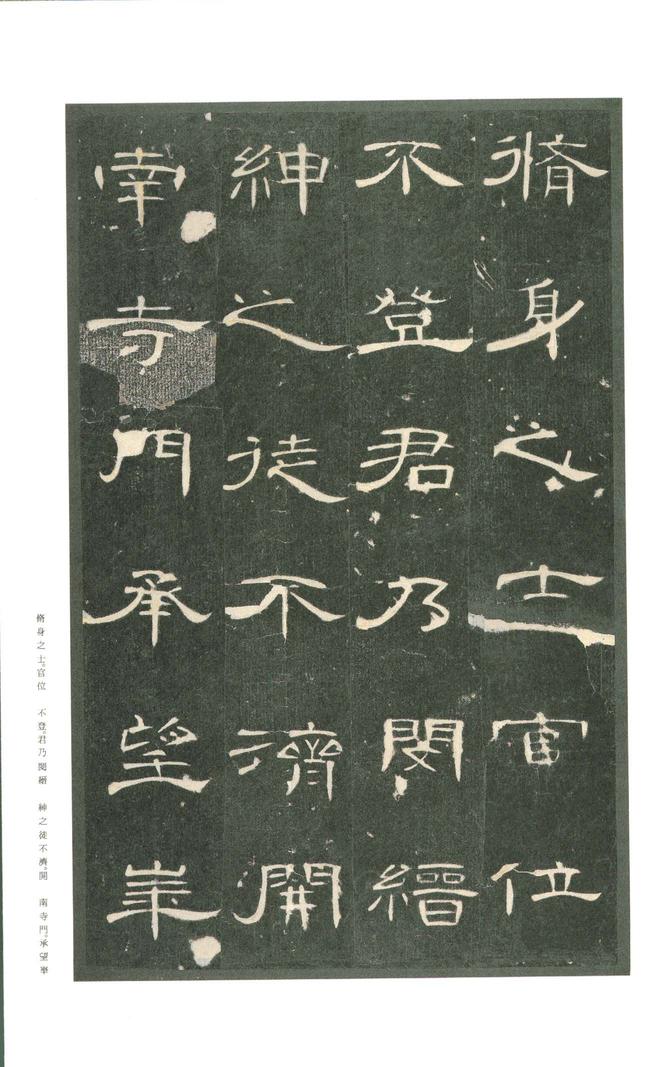 脩身之士官位
不登君乃閔縉
紳之徒不濟開
南寺門承望崋
脩身之士。官位　不登。君乃閔縉　紳之徒不濟。開　南寺門。承望崋